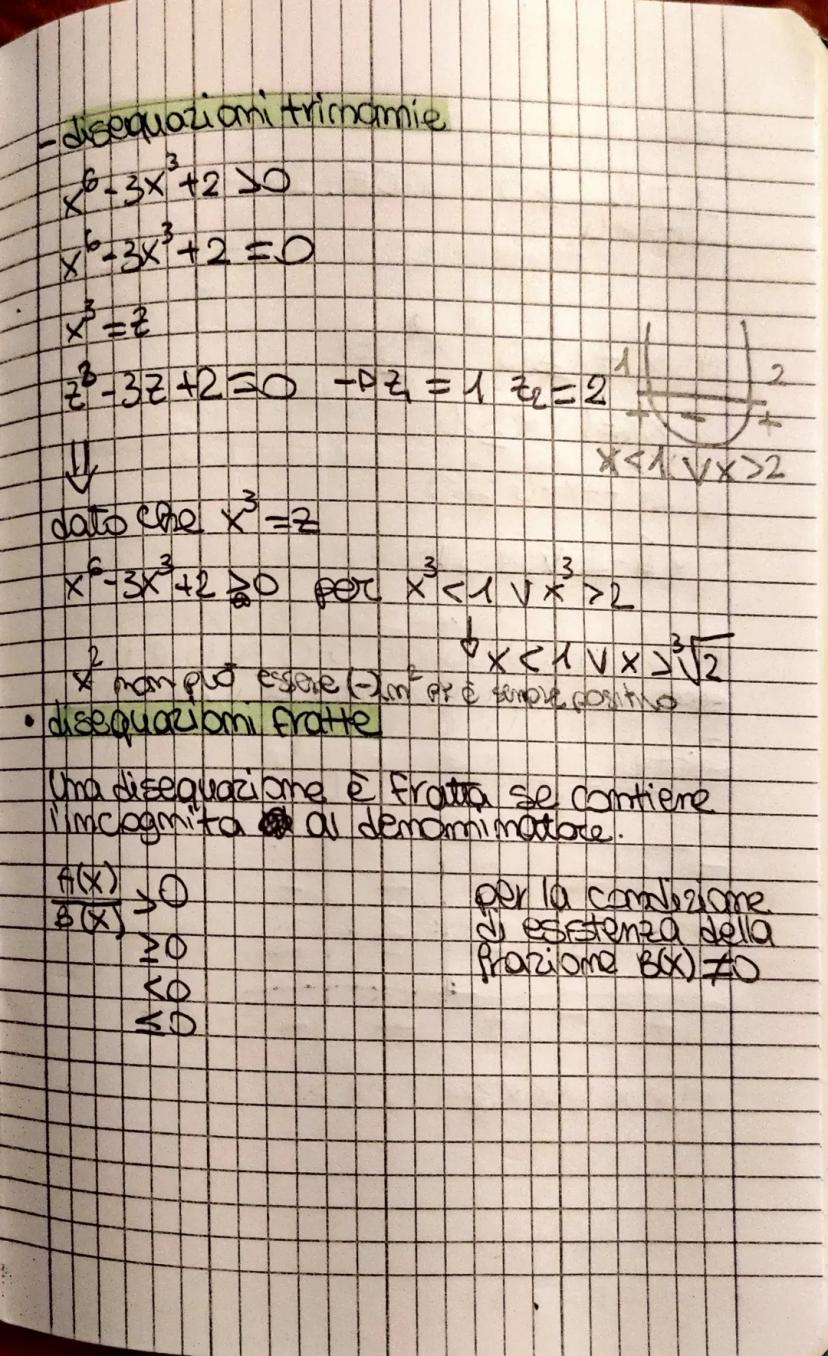 - disequazioni trinomie
x⁶-3x³+2>0
x⁶-3x³+2=0
x³=z
z²-3z+2=0 → z₁=1 z₂=2
1 2
+ - +
x<1 ∨ x>2
⇓
dato che x³=z
x⁶-3x³+2>0 per x³<1 ∨ x³>2
↓ x<1 ∨ x>³√2
x² non può essere (-) è sempre positivo
• disequazioni fratte
Una disequazione è fratta se contiene
l'incognita al denominatore.
A(x)/B(x) >0
≥0
<0
≤0
per la condizione
di esistenza della
frazione B(x)≠0